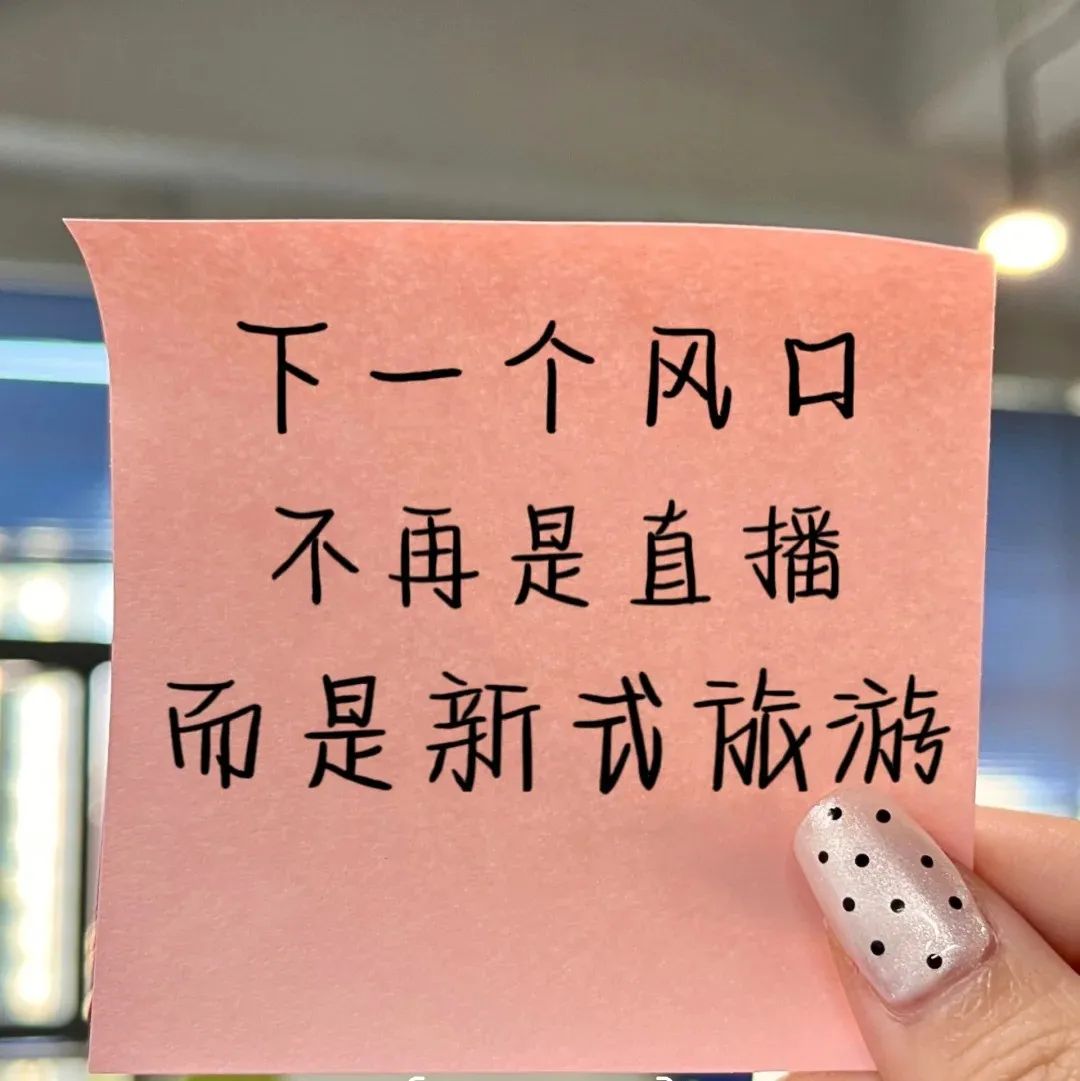 下一个风口
不再是直播
而是新式旅游